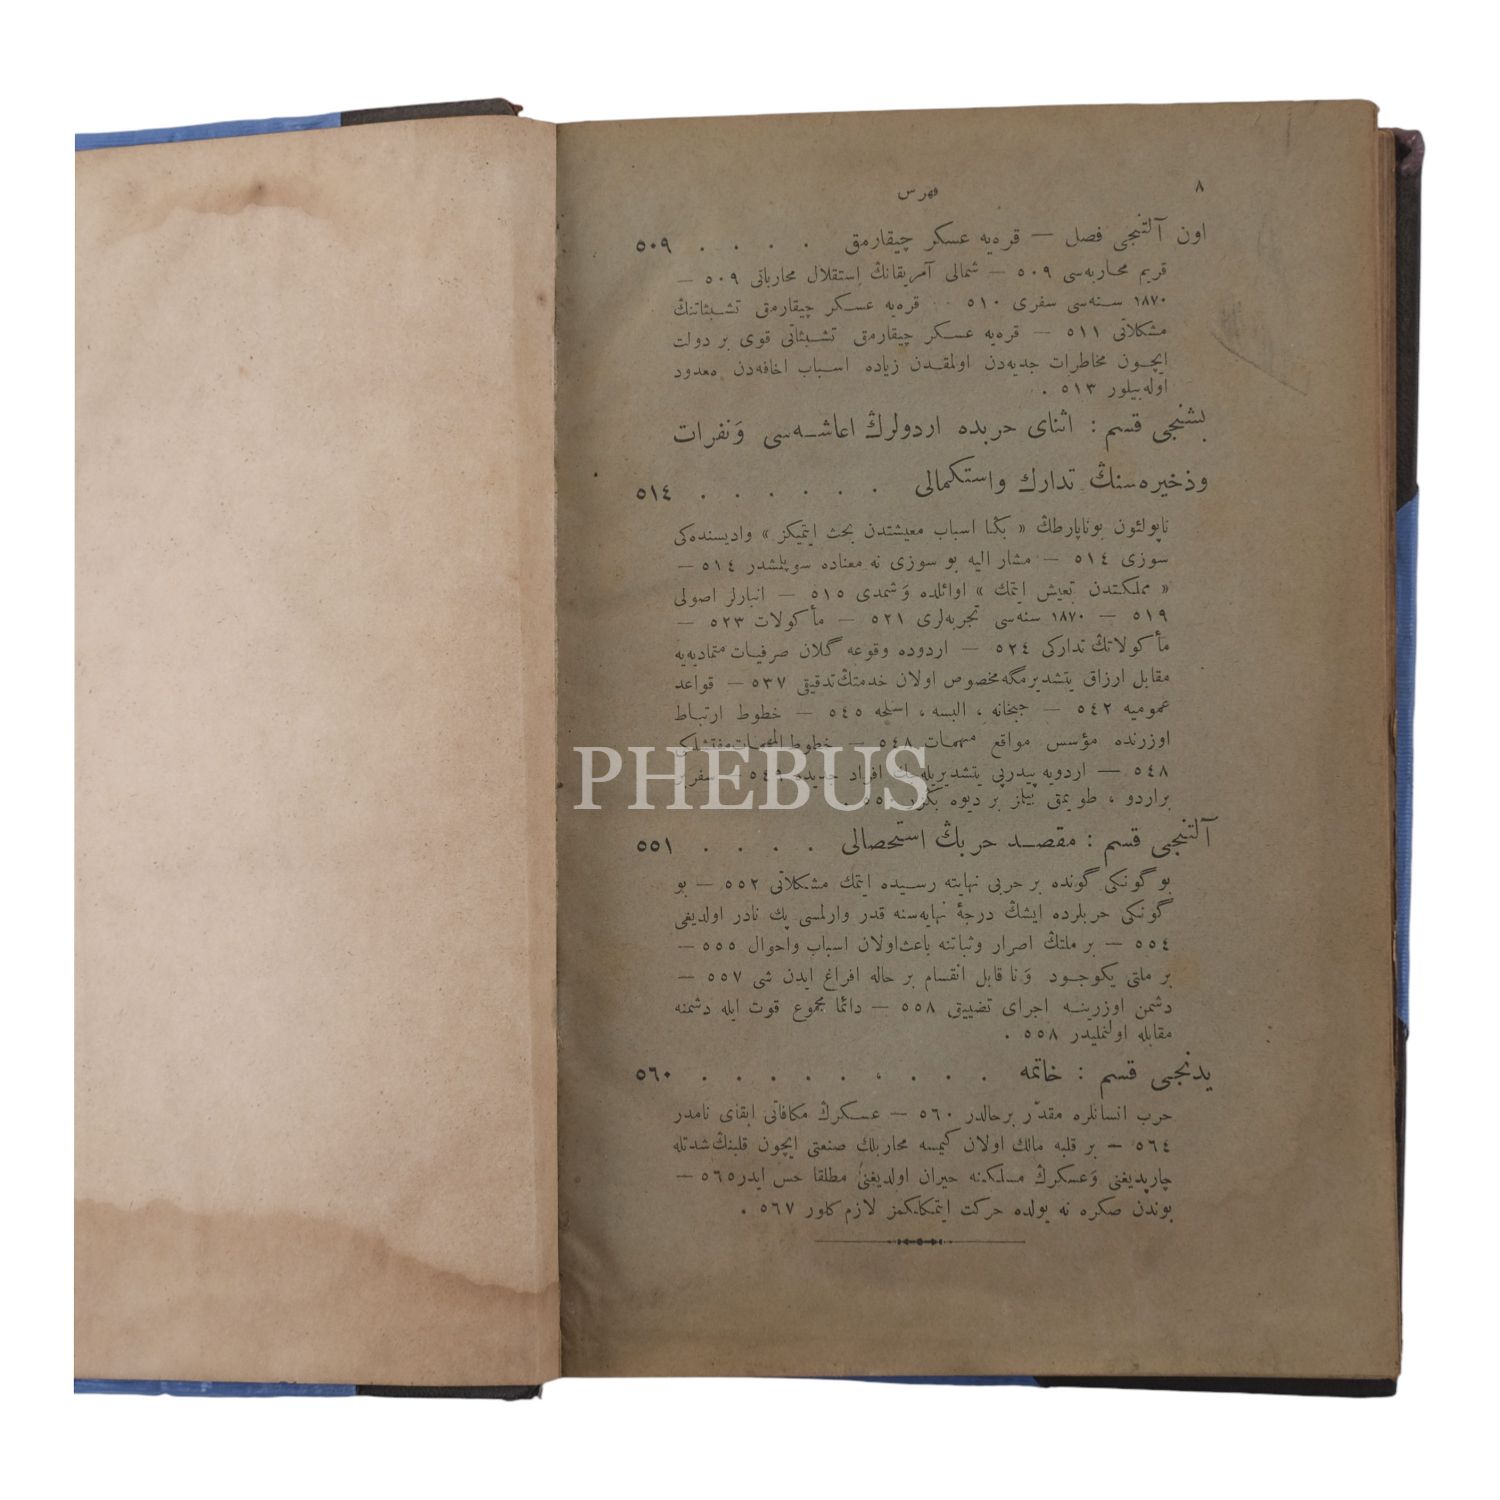 ٨
فهرس
اون آلتنجی فصل — قره‌یه عسكر چیقارمق . . . . ٥٠٩
قریم محاربه‌سی ٥٠٩ — شمالی آمریقانڭ استقلال محارباتی ٥٠٩ —
١٨٧٠ سنه‌سی سفری ٥١٠ — قره‌یه عسكر چیقارمق تشبثاتنڭ
مشكلاتی ٥١١ — قره‌یه عسكر چیقارمق تشبثاتی قوی بر دولت
ایچون مخاطرات جدیه‌دن اولمقدن زیاده اسباب اخافه‌دن معدود
اوله‌بیلور ٥١٣ .
بشنجی قسم : اثنای حربده اردولرڭ اعاشه‌سی وَنفرات
وذخیره‌سنڭ تدارك واستكمالی . . . . . . ٥١٤
ناپولئون بوناپارطڭ « بڭا اسباب معیشتدن بحث ایتمیكز » وادیسنده‌كی
سوزی ٥١٤ — مشار الیه بو سوزی نه معناده سویلشدر ٥١٤ —
« مملكتدن تعیش ایتمك » اوائلده وَشمدی ٥١٥ — انبارلر اصولی
٥١٩ — ١٨٧٠ سنه‌سی تجربه‌لری ٥٢١ — مأكولات ٥٢٣ —
مأكولاتڭ تداركی ٥٢٤ — اردوده وقوعه گلان صرفیات متمادیه‌یه
مقابل ارزاق یتشدیرمگه مخصوص اولان خدمتڭ تدقیقی ٥٣٧ — قواعد
عمومیه ٥٤٢ — جبخانه ، البسه ، اسلحه ٥٤٥ — خطوط ارتباط
اوزرنده مؤسس مواقع مهمات ٥٤٨ — خطوط المهمات مفتشلكی
٥٤٨ — اردویه پیدرپی یتشدیریله‌جك افراد جدیده ٥٤٩ — سفربر
براردو ، طویمق بیلمز بر دیوه بڭزر ٥٥٠ .
PHEBUS
آلتنجی قسم : مقصد حربڭ استحصالی . . . . ٥٥١
بو گونكی گونده بر حربی نهایته رسیده ایتمك مشكلاتی ٥٥٢ — بو
گونكی حربلرده ایشڭ درجهٔ نهایه‌سنه قدر وارلمسی پك نادر اولدیغی
٥٥٤ — بر ملتڭ اصرار وثباتنه باعث‌اولان اسباب واحوال ٥٥٥ —
بر ملتی یكوجود وَنا قابل انقسام بر حاله افراغ ایدن شی ٥٥٧ —
دشمن اوزرینه اجرای تضییق ٥٥٨ — دائما مجموع قوت ایله دشمنه
مقابله اولنملیدر ٥٥٨ .
یدنجی قسم : خاتمه . . . . . . . . ٥٦٠
حرب انسانلره مقدّر برحالدر ٥٦٠ — عسكرڭ مكافاتی ابقای نامدر
٥٦٤ — بر قلبه مالك اولان كیمسه محاربلك صنعتی ایچون قلبنڭ شدتله
چارپدیغنی وَعسكرڭ مسلكنه حیران اولدیغنی مطلقا حس ایدر ٥٦٥ —
بوندن صكره نه یولده حركت ایتمكلكمز لازم كلور ٥٦٧ .